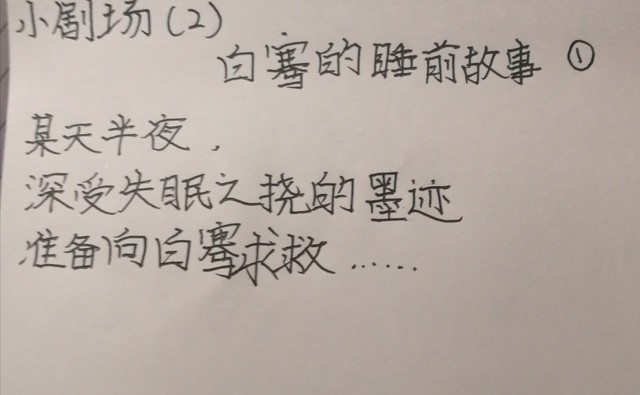 小剧场(2)
白骞的睡前故事 ①
某天半夜，
深受失眠之挠的墨迹
准备向白骞求救……